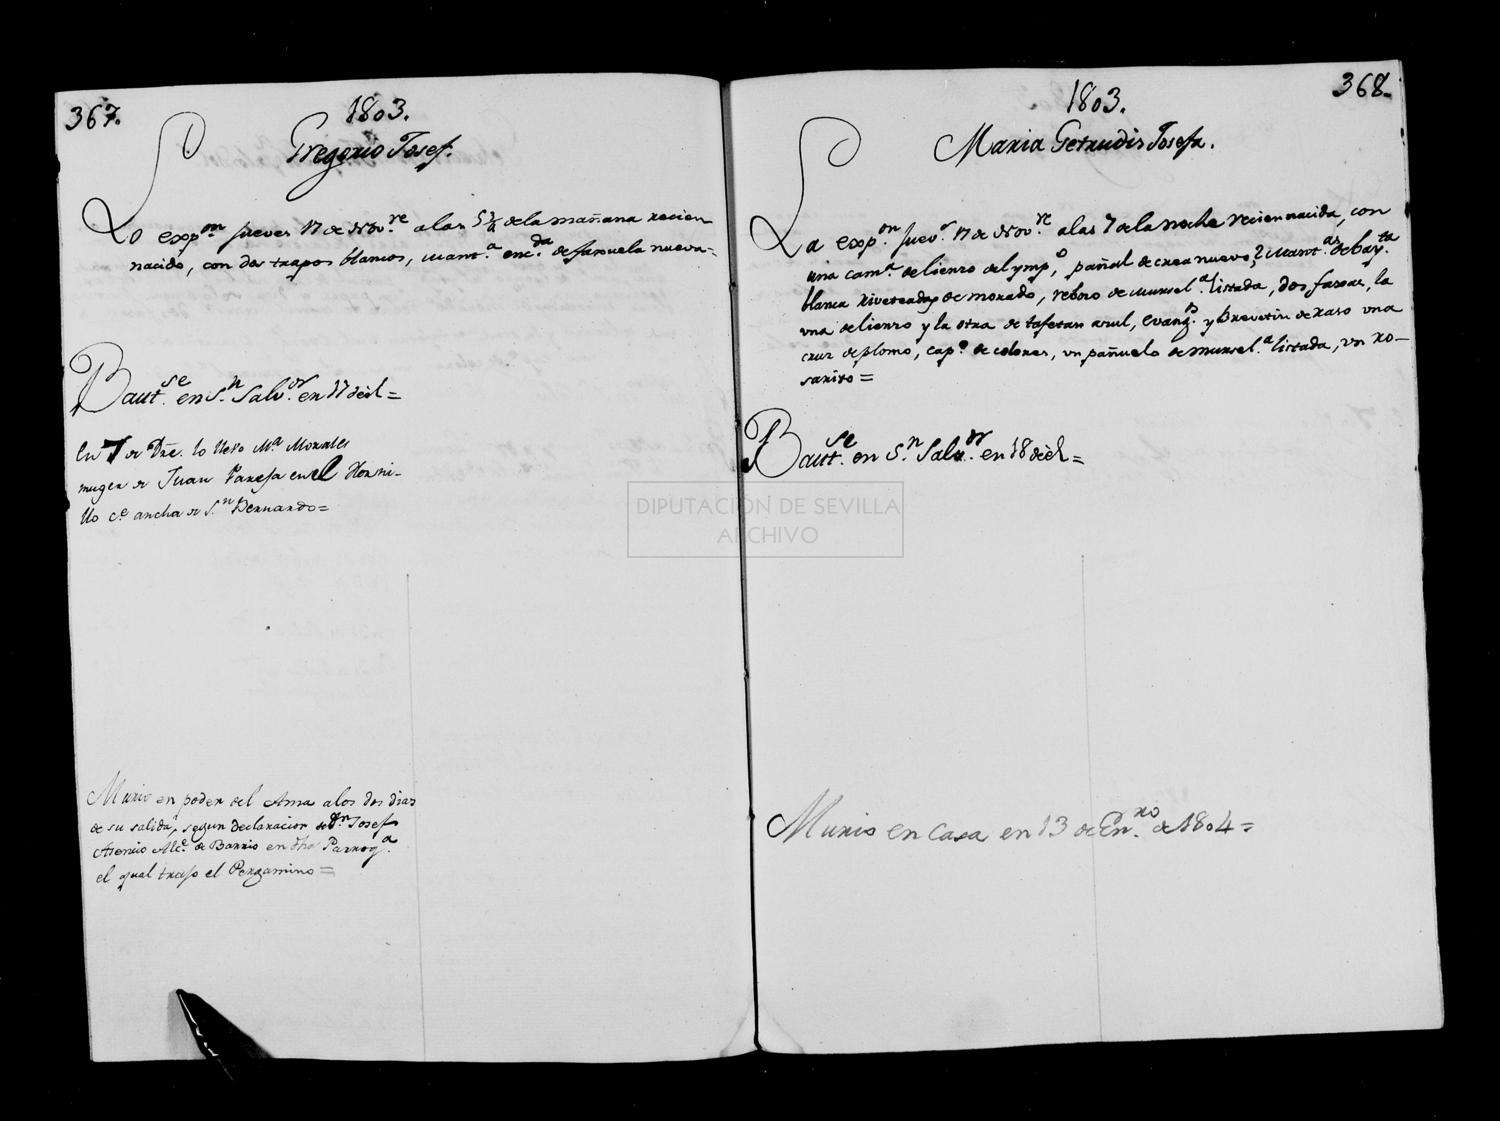 367.
1803.
Gregorio Josef.
Lo exp.on jueves 17 de Nov.re a las 5 3/4 de la mañana recien
nacido, con dos trapos blancos, mant.a enc.da de faxuela nueva=
Baut.se en S.n Salv.or en 17 dèl=
En 7 de Dre. lo llevo M.a Morales
muger de Juan Pareja en el Horni-
llo c.e ancha de S.n Bernardo=
Murio en poder del Ama a los dos dias
de su salida, segun declaracion de D.n Josef
Asencio Alc.e de Barrio en dha Parroq.a
el qual trajo el Pergamino=
368.
1803.
Maria Getrudis Josefa.
La exp.on juev.s 17 de Nov.re a las 7 de la noche recien nacida, con
una cam.a de lienzo del ymp.o, pañal de crea nuevo, 2 mant.as de bay.ta
blanca riveteadas de morado, reboso de mursel.a listada, dos faxas, la
una de lienzo y la otra de tafetan azul, evang.s y Brevetin de raso una
cruz de plomo, cap.o de colores, un pañuelo de mursel.a listada, un ro-
sario=
Baut.se en S.n Salv.or en 18 dèl=
Murio en Casa en 13 de En.ro de 1804=
DIPUTACIÓN DE SEVILLA
ARCHIVO